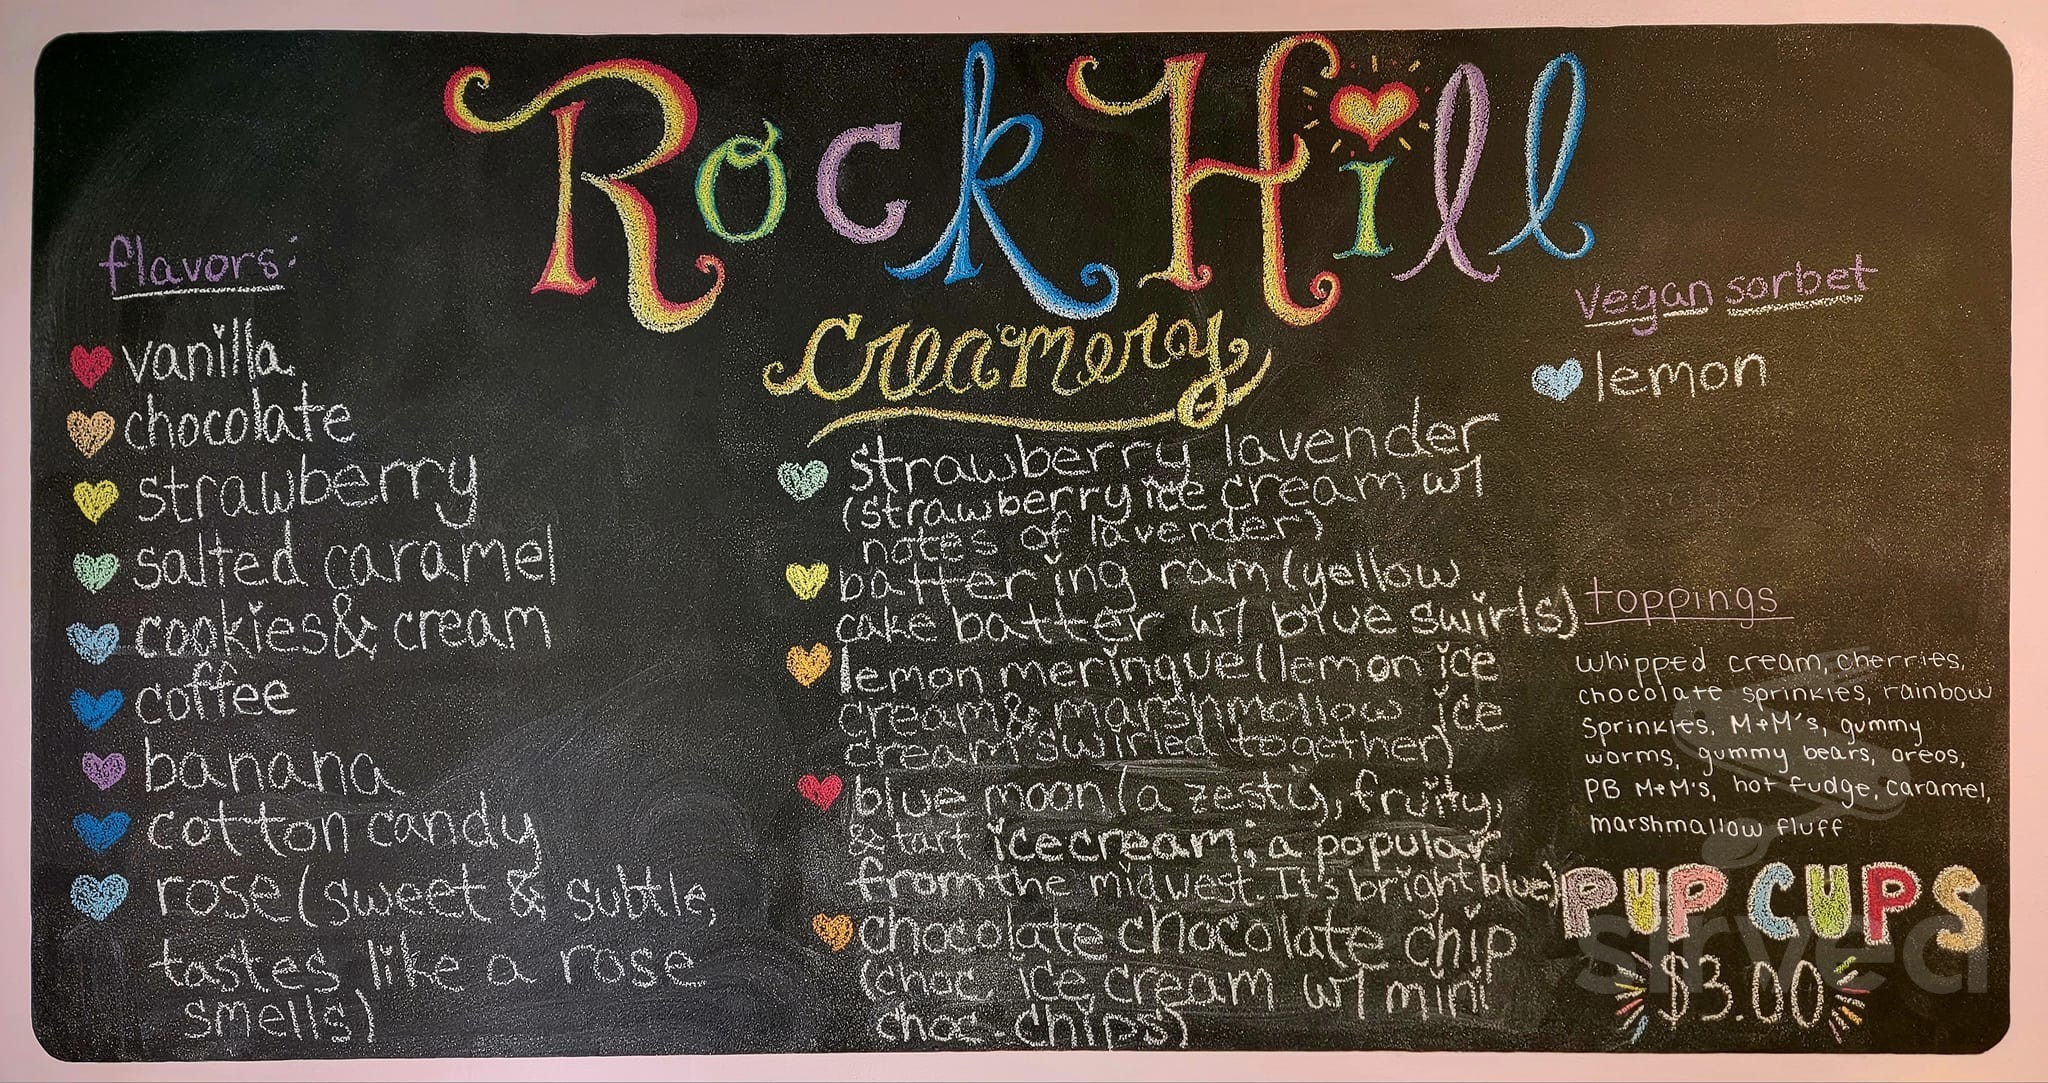 Rock Hill
creamery
flavors:
vanilla
chocolate
strawberry
salted caramel
cookies & cream
coffee
banana
cotton candy
rose (sweet & subtle,
tastes like a rose
smells)
strawberry lavender
(strawberry ice cream w/
notes of lavender)
battering ram (yellow
cake batter w/ blue swirls)
lemon meringue (lemon ice
cream & marshmollow ice
cream swirled together)
blue moon (a zesty, fruity,
& tart icecream, a popular
from the midwest. It's bright blue)
chocolate chocolate chip
(choc ice cream w/ mini
choc-chips)
vegan sorbet
lemon
toppings
whipped cream, cherries,
chocolate sprinkles, rainbow
sprinkles, M+M's, gummy
worms, gummy bears, oreos,
PB M+M's, hot fudge, caramel,
marshmallow fluff
PUP CUPS
$3.00
sirved